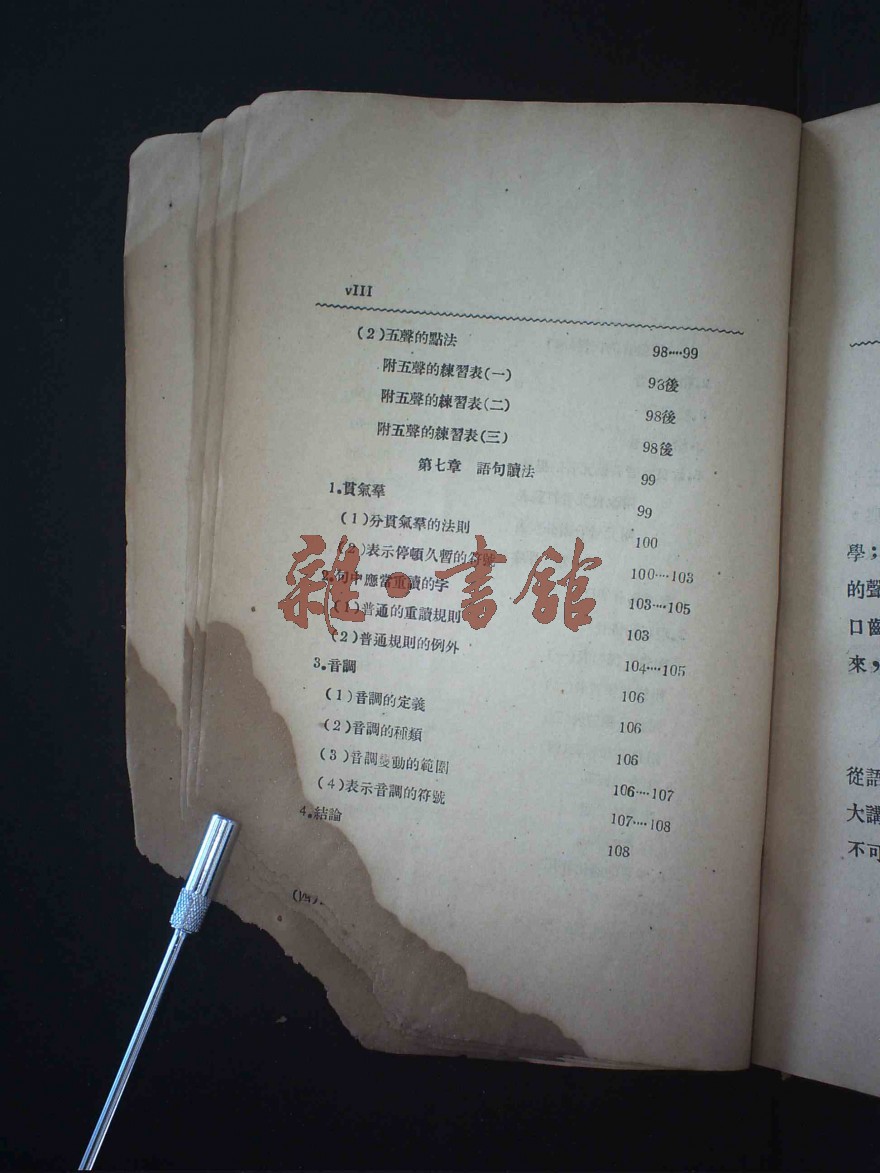 vIII
(2)五聲的點法 98····99
附五聲的練習表(一) 98後
附五聲的練習表(二) 98後
附五聲的練習表(三) 98後
第七章 語句讀法 99
1.貫氣羣 99
(1)分貫氣羣的法則 100
(2)表示停頓久暫的符號 100····103
2.句中應當重讀的字 103····105
(1)普通的重讀規則 103
(2)普通規則的例外 104····105
3.音調 106
(1)音調的定義 106
(2)音調的種類 106
(3)音調變動的範圍 106····107
(4)表示音調的符號 107····108
4.結論 108
雜·書舘
學;
的聲
口齒
來,
從語
大講
不可